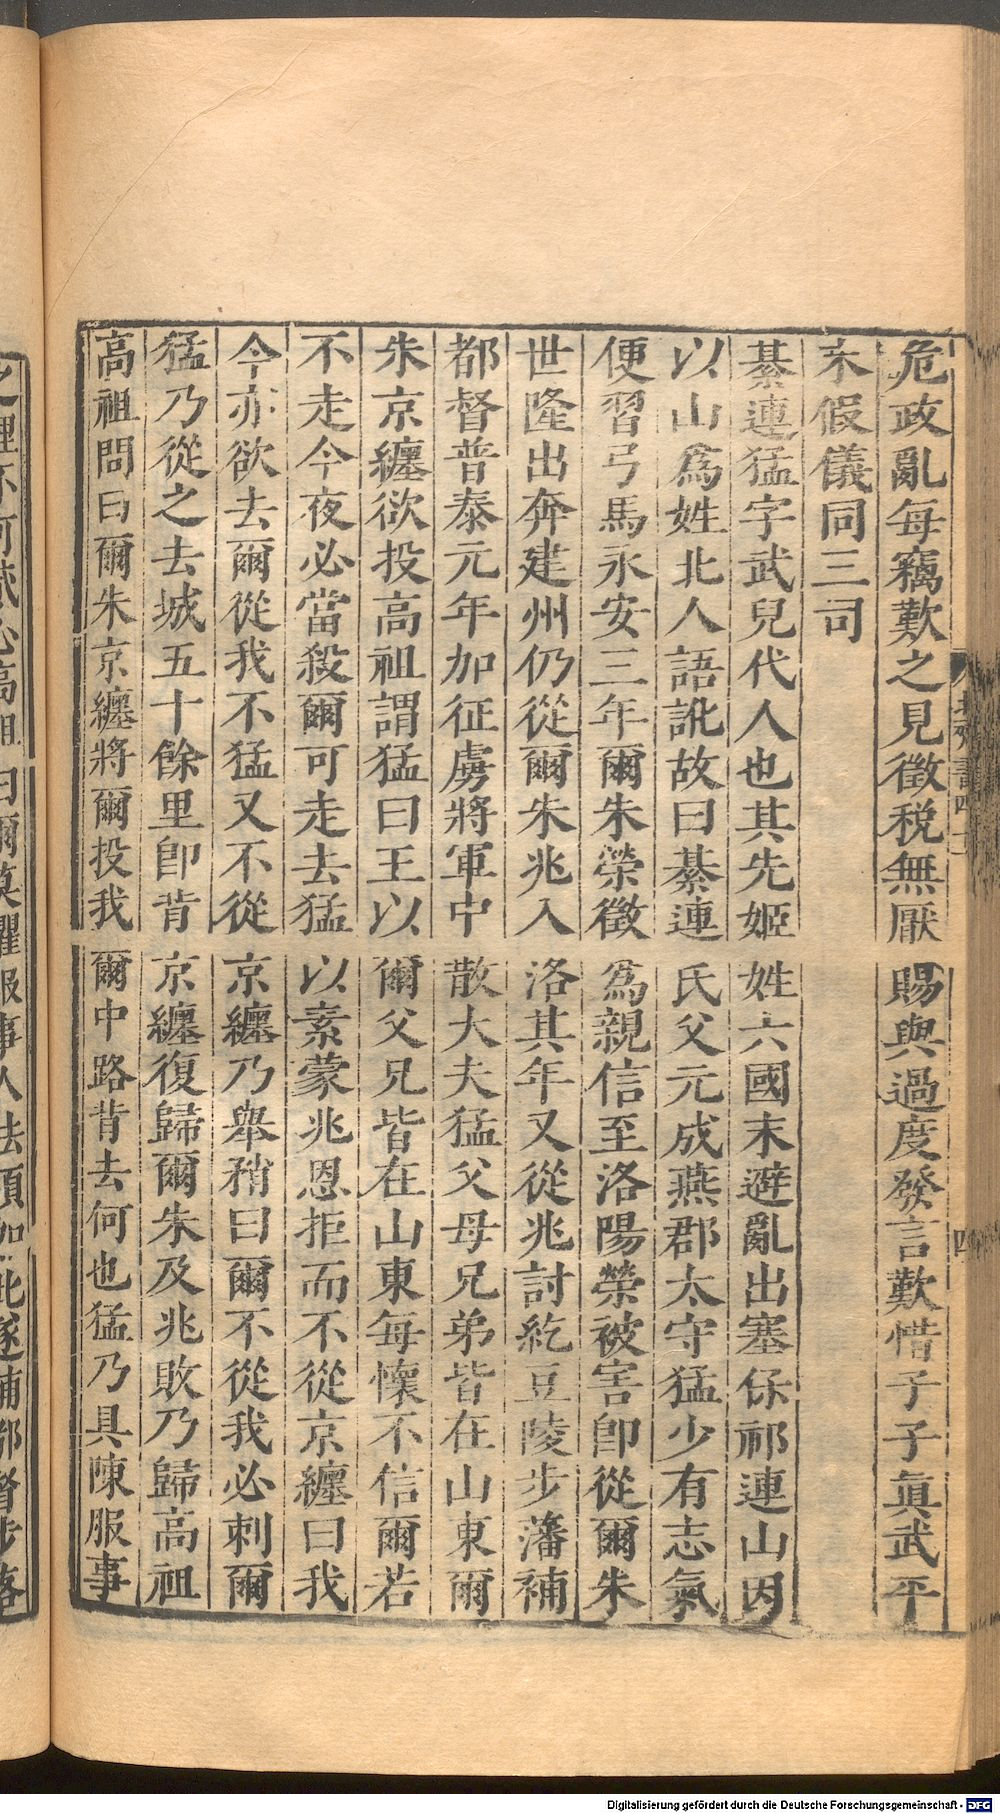 危政亂每竊歎之見徵稅無厭賜與過度發言歎惜子子眞武平
末假儀同三司
綦連猛字武兒代人也其先姬姓六國末避亂出塞保祁連山因
以山爲姓北人語訛故曰綦連氏父元成燕郡太守猛少有志氣
便習弓馬永安三年爾朱榮徵爲親信至洛陽榮被害卽從爾朱
世隆出奔建州仍從爾朱兆入洛其年又從兆討紇豆陵步藩補
都督普泰元年加征虜將軍中散大夫猛父母兄弟皆在山東爾
朱京纏欲投高祖謂猛曰王以爾父兄皆在山東每懷不信爾若
不走今夜必當殺爾可走去猛以素蒙兆恩拒而不從京纏曰我
今亦欲去爾從我不猛又不從京纏乃舉矟曰爾不從我必刺爾
猛乃從之去城五十餘里卽背京纏復歸爾朱及兆敗乃歸高祖
高祖問曰爾朱京纏將爾投我爾中路背去何也猛乃具陳服事
曰爾莫懼服事人法須如此遂補都督步落
Digitalisierung gefördert durch die Deutsche Forschungsgemeinschaft - DFG